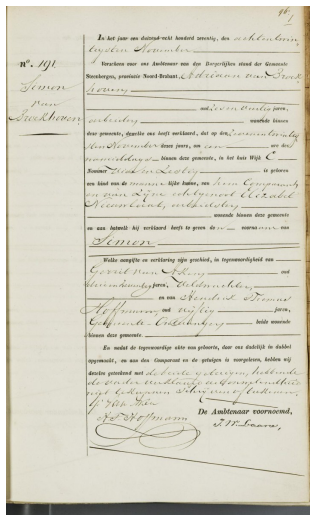 Nº. 191.
Simon
van
Broekhoven
In het jaar een duizend acht honderd zeventig, den achtentwin-
tigsten November
Verscheen voor ons Ambtenaar van den Burgerlijken stand der Gemeente
Steenbergen, provincie Noord-Brabant, Adriaan van Broek-
hoven
oud jaren,
arbeider wonende binnen
deze gemeente, dewelke ons heeft verklaard, dat op den
sten November dezes jaars, en een ure des
namiddags binnen deze gemeente, in het huis Wijk C
Nommer is geboren
een kind van de mannelijke kunne, van hem Comparant
en van zijne echtgenoot Elizabet
arbeidster
wonende binnen deze gemeente
en aan hetwelk hij verklaard heeft te geven den voornaam van
Simon
Welke aangifte en verklaring zijn geschied, in tegenwoordigheid van
Gerrit van oud
jaren, veldwachter,
en van Hendrik Thomas
Hoffmann, oud vijftig jaren,
Gemeente-Ontvanger, beide wonende
binnen deze gemeente.
En nadat de tegenwoordige akte van geboorte, door ons dadelijk in dubbel
opgemaakt, en aan den Comparant en de getuigen is voorgelezen, hebben wij
dezelve geteekend met de beide getuigen, hebbende
de vader verklaard
niet te kunnen schrijven
H.T. Hoffmann
De Ambtenaar voornoemd,